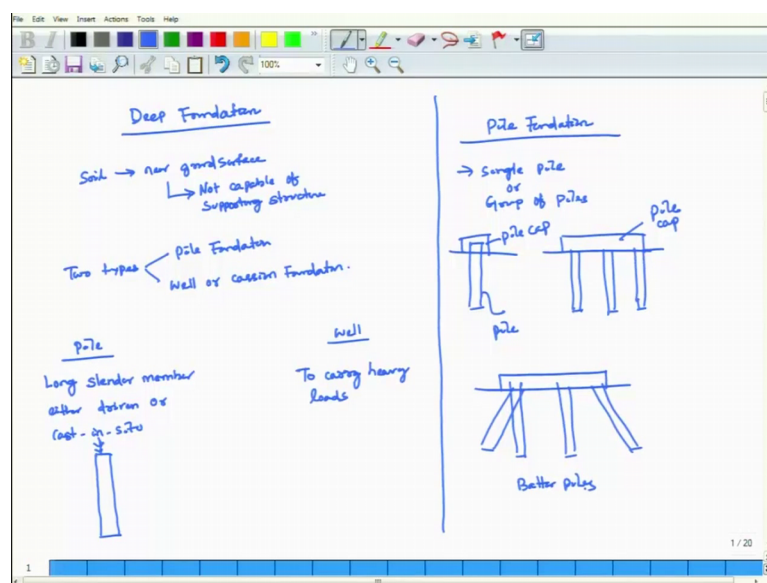 File Edit View Insert Actions Tools Help
B I
100%
Deep Foundation
Soil → near ground surface
Not capable of
supporting structure
Two types
Pile Foundation
Well or cassion Foundation.
Pile
Long slender member
either driven or
cast-in-situ
Well
To carry heavy
loads
Pile Foundation
→ Single pile
or
Group of Piles
pile cap
pile
pile
cap
Batter piles
1 / 20
1